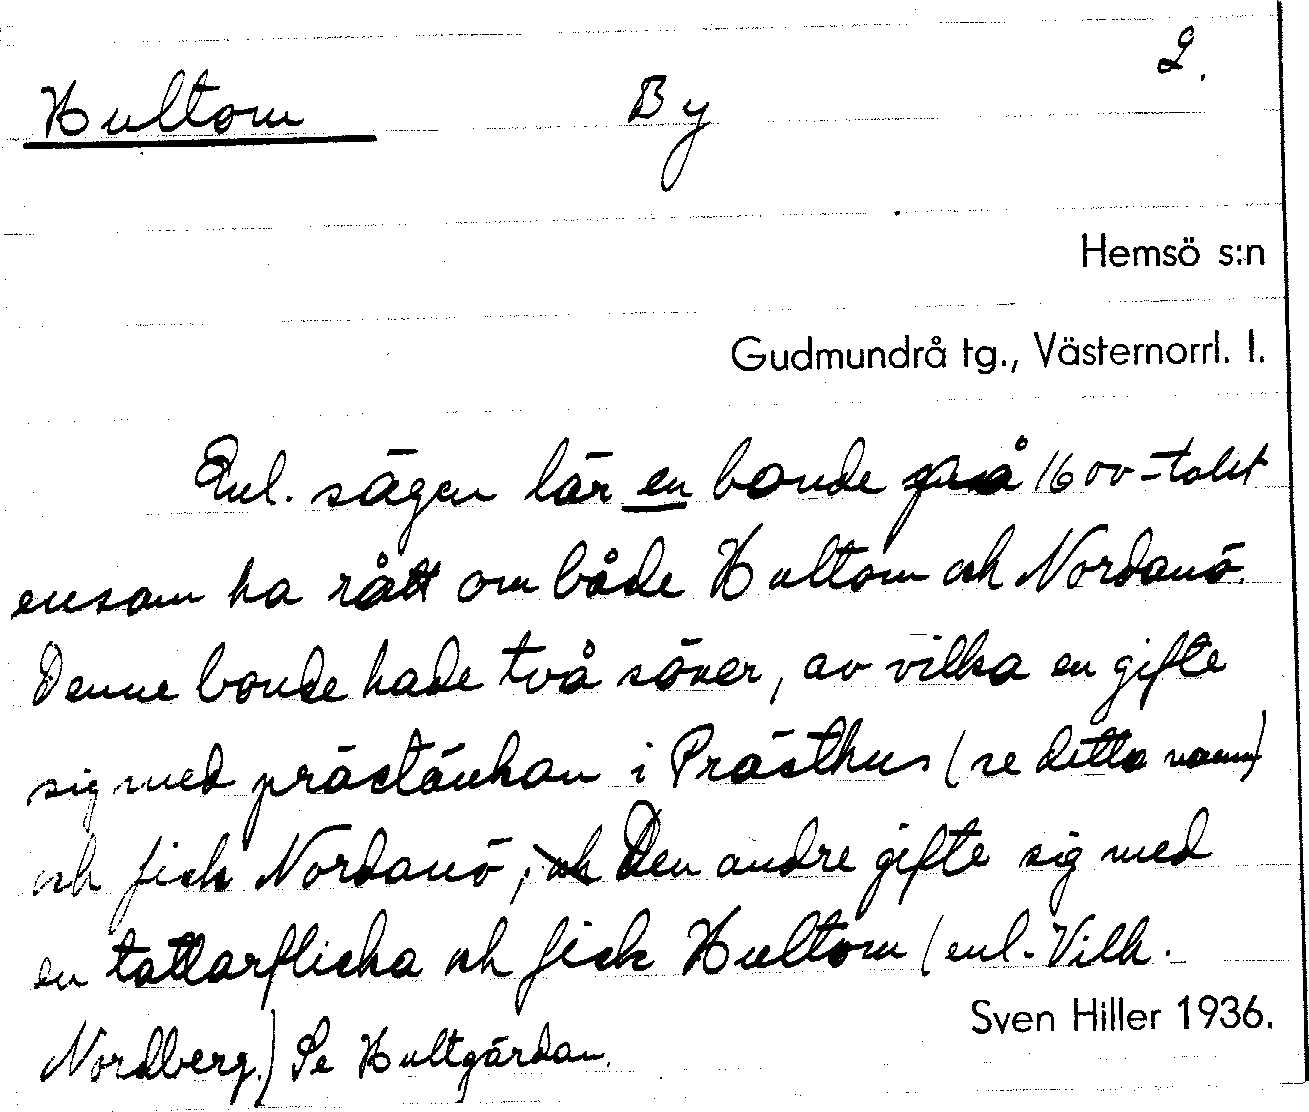 2.
Hultom By
Hemsö s:n
Gudmundrå tg., Västernorrl. l.
Enl. sägen lär en bonde på 1600-talet
ensam ha rått om både Hultom och Nordanö.
Denne bonde hade två söner, av vilka en gifte
sig med prästänkan i Prästhus (se detta namn)
och fick Nordanö, och Den andre gifte sig med
en tattarflicka och fick Hultom (enl. Vilh.
Nordberg.) Se Hultgårdan.
Sven Hiller 1936.